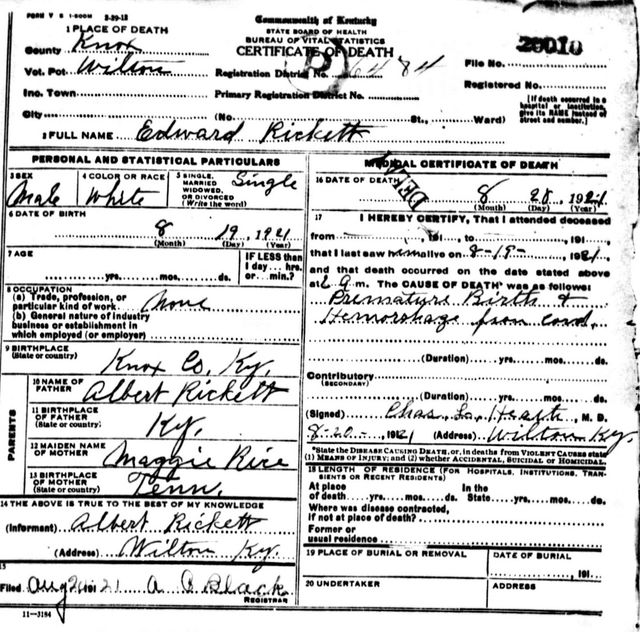 FORM V S 1-500M 3-29-12
Commonwealth of Kentucky
STATE BOARD OF HEALTH
BUREAU OF VITAL STATISTICS
CERTIFICATE OF DEATH
1 PLACE OF DEATH
County Knox
Vot. Pct Wilton
Inc. Town
City
Registration District No. 6484
Primary Registration District No.
(No. St., Ward)
File No. 20010
Registered No.
[If death occurred in a hospital or institution, give its NAME instead of street and number.]
2 FULL NAME Edward Rickett
PERSONAL AND STATISTICAL PARTICULARS
3 SEX
Male
4 COLOR OR RACE
White
5 SINGLE, MARRIED WIDOWED, OR DIVORCED (Write the word)
Single
6 DATE OF BIRTH
8 19 1921
(Month) (Day) (Year)
7 AGE
yrs. mos. ds.
IF LESS than 1 day... hrs. or... min.?
8 OCCUPATION
(a) Trade, profession, or particular kind of work None
(b) General nature of industry business or establishment in which employed (or employer)
9 BIRTHPLACE
(State or country) Knox Co, Ky.
PARENTS
10 NAME OF FATHER Albert Rickett
11 BIRTHPLACE OF FATHER (State or country) Ky.
12 MAIDEN NAME OF MOTHER Maggie Rice
13 BIRTHPLACE OF MOTHER (State or country) Tenn.
14 THE ABOVE IS TRUE TO THE BEST OF MY KNOWLEDGE
(Informant) Albert Rickett
(Address) Wilton Ky.
15
Filed Aug 191 21 Black
REGISTRAR
11-3184
MEDICAL CERTIFICATE OF DEATH
16 DATE OF DEATH
8 20 1921
(Month) (Day) (Year)
17 I HEREBY CERTIFY, That I attended deceased
from , 191 , to , 191 ,
that I last saw him alive on 8-19- 1921
and that death occurred on the date stated above
at 2 a m. The CAUSE OF DEATH* was as follows:
Premature Birth &
Hemorrhage from cord.
(Duration) yrs. mos. ds.
Contributory
(SECONDARY)
(Duration) yrs. mos. ds.
(Signed) Chas. L. Heath, M. D.
8-20- , 1921 (Address) Wilton Ky.
*State the DISEASE CAUSING DEATH, or, in deaths from VIOLENT CAUSES state
(1) MEANS OF INJURY; and (2) whether ACCIDENTAL, SUICIDAL or HOMICIDAL.
18 LENGTH OF RESIDENCE (FOR HOSPITALS, INSTITUTIONS, TRANSIENTS OR RECENT RESIDENTS)
At place of death yrs. mos. ds. In the State yrs. mos. ds.
Where was disease contracted, if not at place of death?
Former or usual residence
19 PLACE OF BURIAL OR REMOVAL
DATE OF BURIAL
191
20 UNDERTAKER
ADDRESS